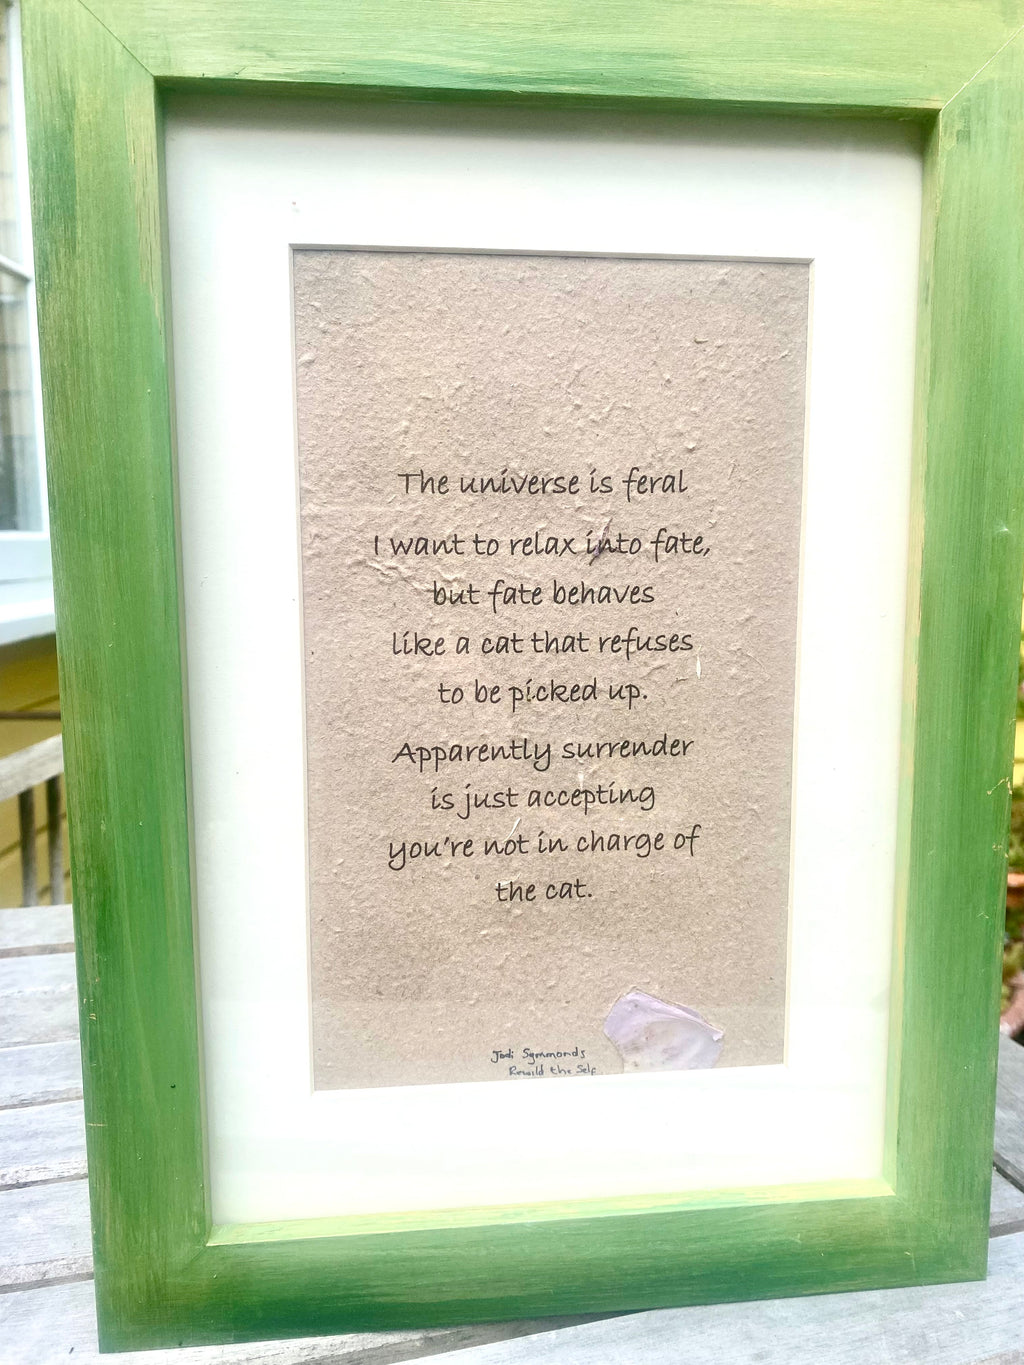 The universe is feral
I want to relax into fate,
but fate behaves
like a cat that refuses
to be picked up.
Apparently surrender
is just accepting
you're not in charge of
the cat.
Jodi Symmonds
Rewild the Self